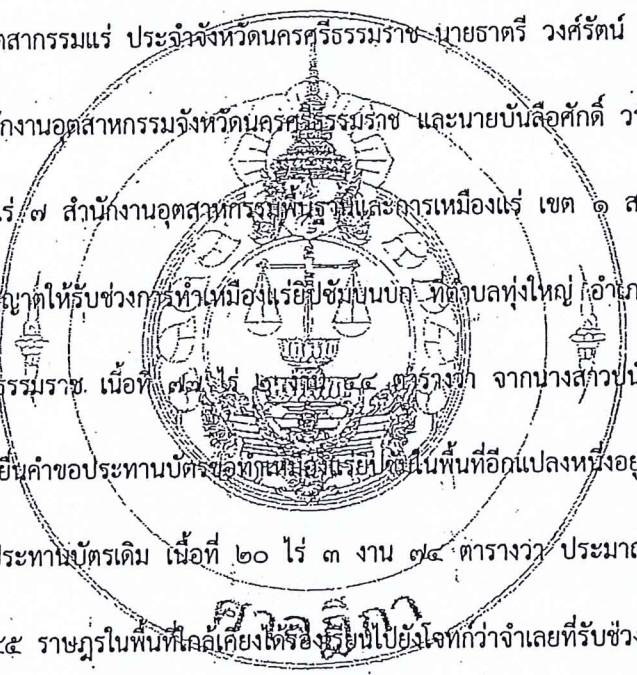 ตสากรรมแร่ ประจำจังหวัดนครศรีธรรมราช นายธาตรี วงศ์รัตน์
ักงานอุตสาหกรรมจังหวัดนครศรีธรรมราช และนายบันลือศักดิ์ วร
ร่ ๗ สำนักงานอุตสาหกรรมพื้นฐานและการเหมืองแร่ เขต ๑ ส
ญาตให้รับช่วงการทำเหมืองแร่ยิปซัมบนบก ที่ตำบลทุ่งใหญ่ อำเภ
ธรรมราช เนื้อที่ ๗๗ ไร่ ๒ งาน ๔๔ ตารางวา จากนางสาวปนั
ยื่นคำขอประทานบัตรขอทำเหมืองแร่ยิปซัมในพื้นที่อีกแปลงหนึ่งอยู
ประทานบัตรเดิม เนื้อที่ ๒๐ ไร่ ๓ งาน ๗๔ ตารางวา ประมาณ
๔๕ ราษฎรในพื้นที่ใกล้เคียงได้ร้องเรียนไปยังโจทก์ว่าจำเลยที่รับช่วง
ศาลฎีกา